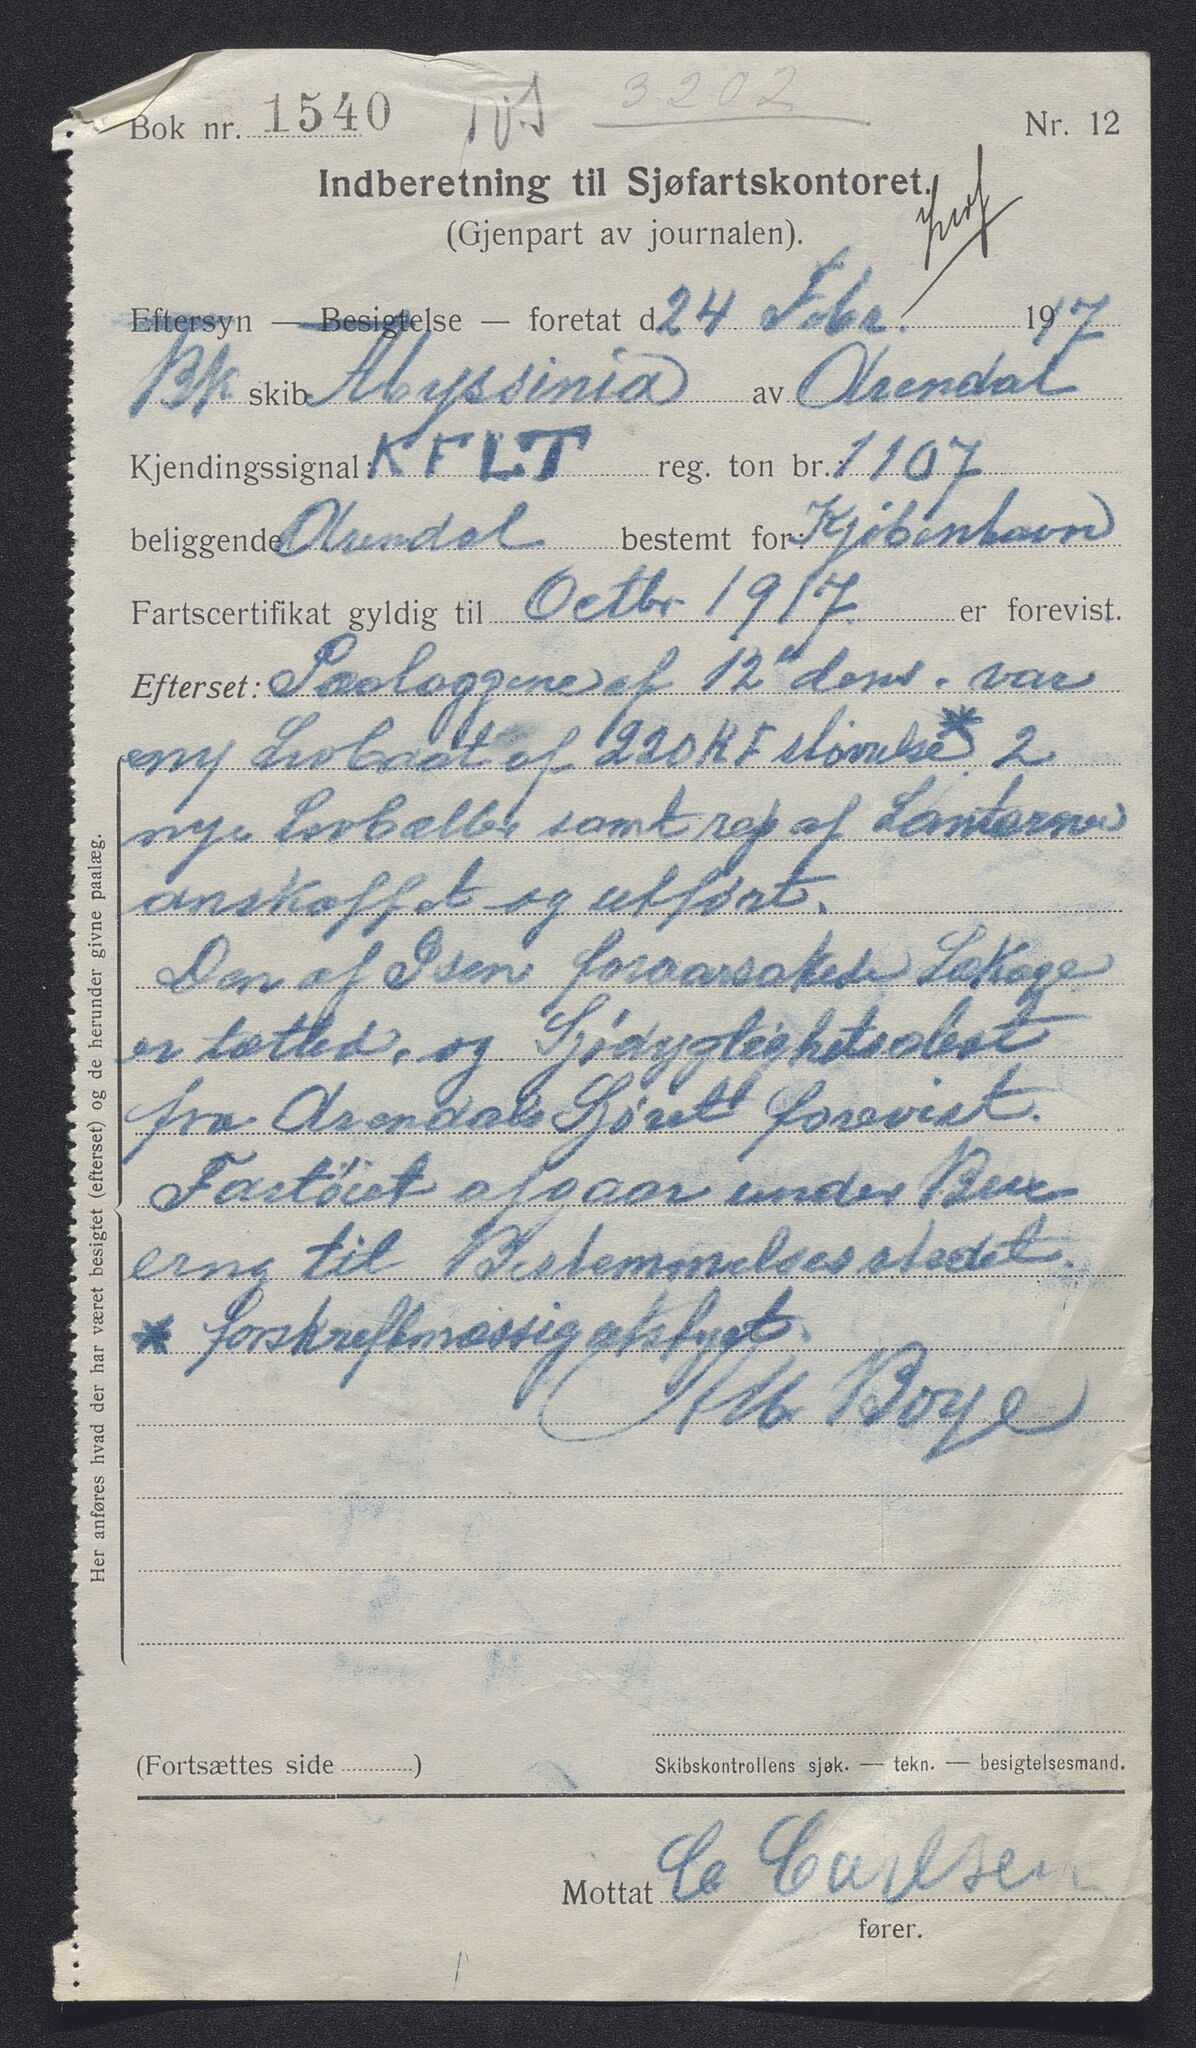 Bok nr. 1540 3202 Nr. 12
Indberetning til Sjøfartskontoret.
(Gjenpart av journalen).
Eftersyn — Besigtelse — foretat d. 24 Febr. 1917
Bk skib Abyssinia av Arendal
Kjendingssignal: KFLT reg. ton br. 1107
beliggende Arendal bestemt for: Kjøbenhavn
Fartscertifikat gyldig til Octbr. 1917 er forevist.
Efterset: Paalæggene af 12te dens. var
en ny Livbaat af 220 KF störrelse * 2
nye Livbælter samt rep af Lanterne
anskaffet og utført.
Den af Isen foraarsakede Lækage
er tætted. og Sjödygtighetsatest
fra Arendals Sjöret forevist.
Fartöiet afgaar under Bux
ering til Bestemmelsesstedet.
* forskriftmæssig utstyrt.
Alb Boye
Her anføres hvad der har været besigtet (efterset) og de herunder givne paalæg.
(Fortsættes side ..........)
Skibskontrollens sjøk. — tekn. — besigtelsesmand.
Mottat C Carlsen
fører.